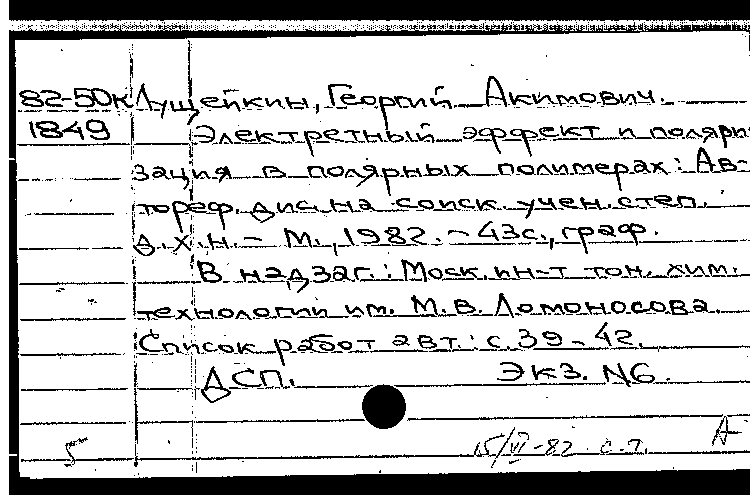 82-50к Лущейкин, Георгий Акимович.
1849 Электретный эффект и поляри
зация в полярных полимерах: Ав-
тореф. дис. на соиск. учен. степ.
д.х.н. – М., 1982. – 43с., граф.
В надзаг.: Моск. ин-т тон. хим.
технологии им. М.В. Ломоносова.
Список работ авт.: с. 39-42.
ДСП. Экз. N6.
5 15/VI-82 с.т. А